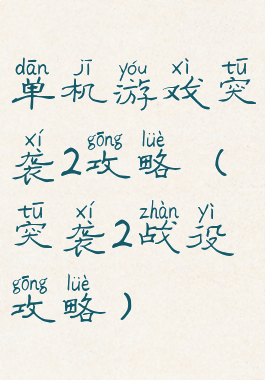 dān jī yóu xì tū
单机游戏突
xí gōng lüè
袭2攻略（
tū xí zhàn yì
突袭2战役
gōng lüè
攻略）